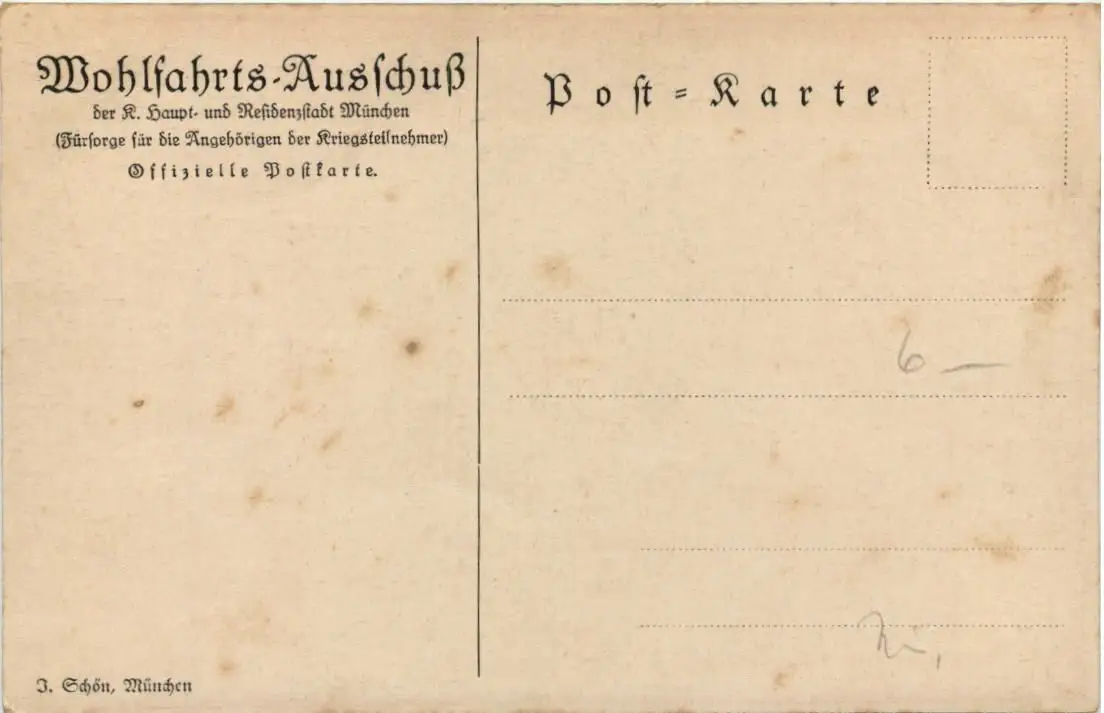 Wohlfahrts-Ausschuß
der K. Haupt- und Residenzstadt München
(Fürsorge für die Angehörigen der Kriegsteilnehmer)
Offizielle Postkarte.
Post-Karte
6 —
J. Schön, München